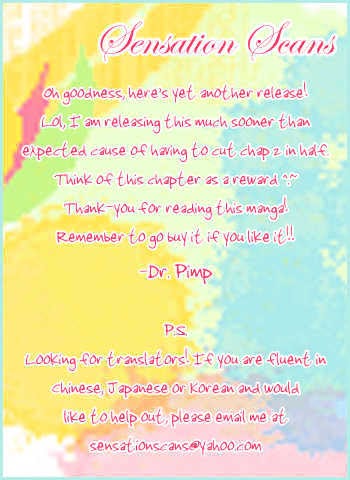 Sensation Scans
Oh goodness, here's yet another release!
Lol, I am releasing this much sooner than
expected cause of having to cut chap 2 in half.
Think of this chapter as a reward ^.~
Thank-you for reading this manga!
Remember to go buy it if you like it!!
-Dr. Pimp
P.S.
Looking for translators! If you are fluent in
Chinese, Japanese or Korean and would
like to help out, please email me at
sensationscans@yahoo.com